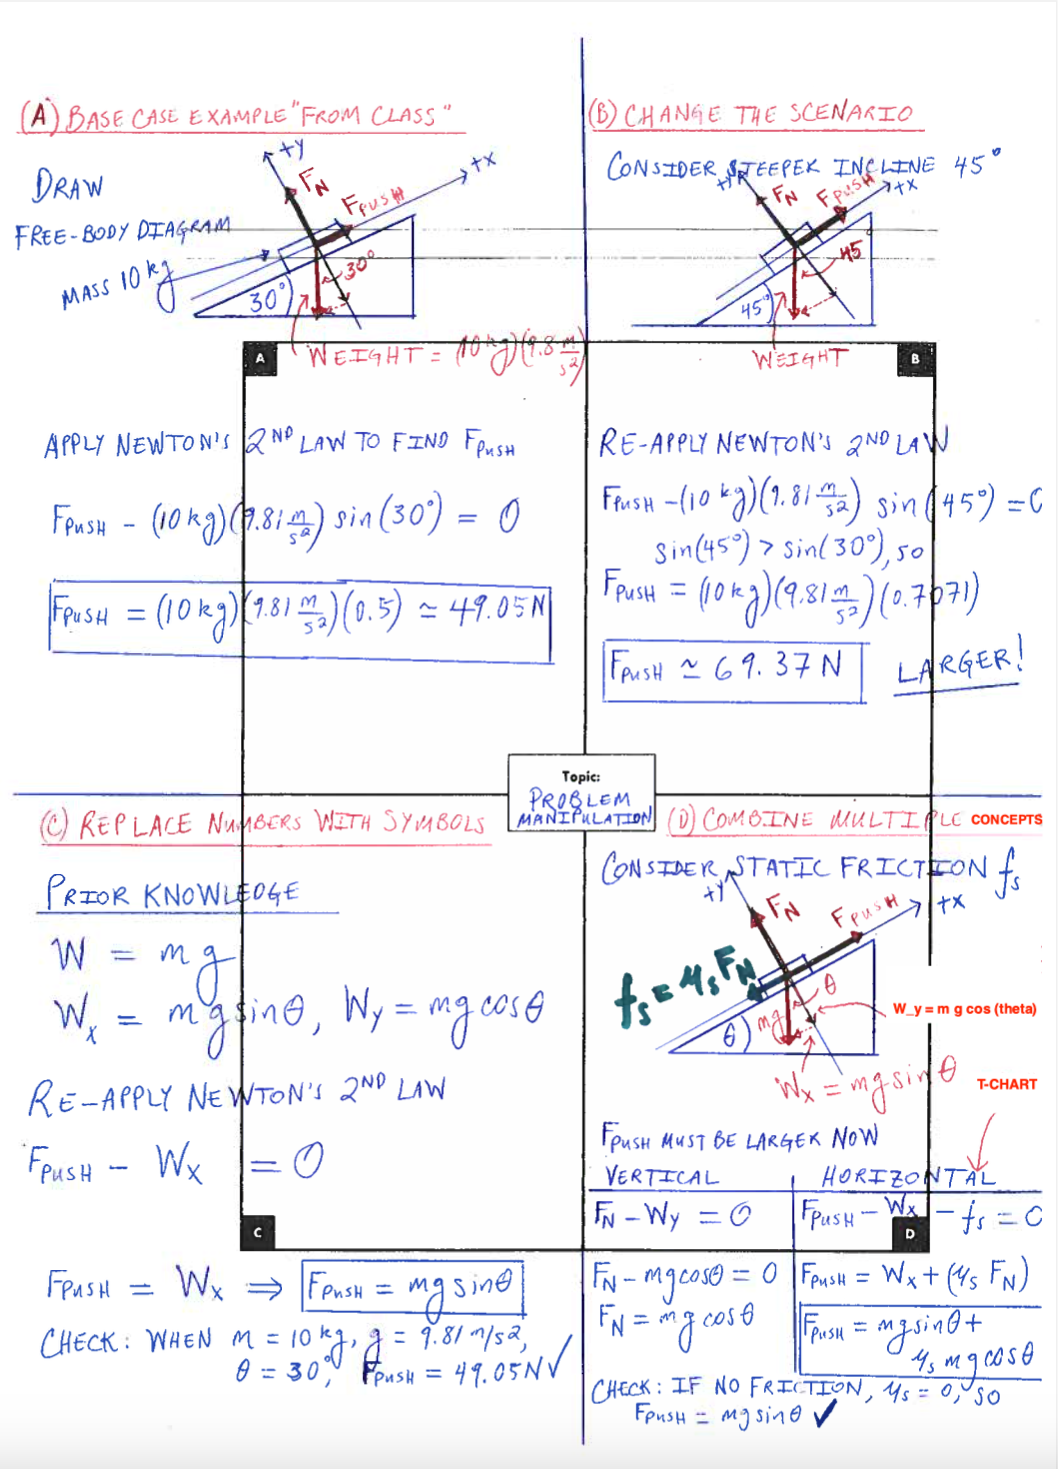 (A) BASE CASE EXAMPLE "FROM CLASS"
DRAW
FREE-BODY DIAGRAM
MASS 10 kg
+y
+x
FN
FPUSH
30°
30°
WEIGHT = (10 kg)(9.8 m/s²)
A
APPLY NEWTON'S 2ND LAW TO FIND FPUSH
FPUSH - (10 kg)(9.81 m/s²) sin(30°) = 0
FPUSH = (10 kg)(9.81 m/s²)(0.5) ≃ 49.05 N
(B) CHANGE THE SCENARIO
CONSIDER STEEPER INCLINE 45°
+y
FN
FPUSH
+x
45
45°
WEIGHT
B
RE-APPLY NEWTON'S 2ND LAW
FPUSH -(10 kg)(9.81 m/s²) sin(45°) = 0
sin(45°) > sin(30°), so
FPUSH = (10 kg)(9.81 m/s²)(0.7071)
FPUSH ≃ 69.37 N
LARGER!
Topic:
PROBLEM
MANIPULATION
(C) REPLACE NUMBERS WITH SYMBOLS
PRIOR KNOWLEDGE
W = mg
Wx = mg sinθ, Wy = mg cosθ
RE-APPLY NEWTON'S 2ND LAW
FPUSH - Wx = 0
C
FPUSH = Wx ⇒ FPUSH = mg sinθ
CHECK: WHEN m = 10 kg, g = 9.81 m/s2,
θ = 30°, FPUSH = 49.05N ✓
(D) COMBINE MULTIPLE CONCEPTS
CONSIDER STATIC FRICTION fs
+y
FN
FPUSH
+x
fs = μs FN
θ
θ
mg
W_y = m g cos (theta)
Wx = mg sinθ
T-CHART
FPUSH MUST BE LARGER NOW
VERTICAL
HORIZONTAL
FN - Wy = 0
FPUSH - Wx - fs = 0
D
FN - mg cosθ = 0
FPUSH = Wx + (μs FN)
FN = mg cosθ
FPUSH = mg sinθ +
μs mg cosθ
CHECK: IF NO FRICTION, μs = 0, so
FPUSH = mg sinθ ✓